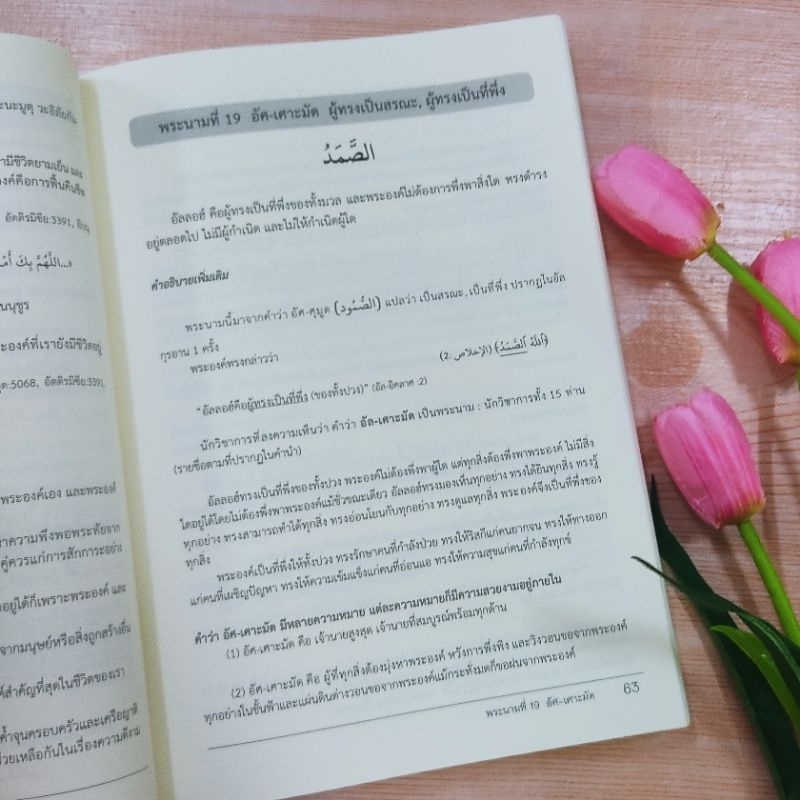 ะนะมูตุ วะอิลัยกัน
ามีชีวิตยามเย็น และ
งค์คือการฟื้นคืนชีพ
อัตติรมิซีย:3391,
«...اللَّهُمَّ بِكَ
นนุชูร
ะองค์ที่เรายังมีชีวิตอยู่
ุด:5068, อัตติรมิซีย:3391,
พระองค์เอง และพระองค์
าความพึงพอพระทัยจาก
คู่ควรแก่การสักการะอย่าง
อยู่ได้ก็เพราะพระองค์ และ
จากมนุษย์หรือสิ่งถูกสร้างอื่น
์สำคัญที่สุดในชีวิตของเรา
ค้ำจุนครอบครัวและเครือญาติ
่วยเหลือกันในเรื่องความดีงาม
พระนามที่ 19 อัศ-เศาะมัด ผู้ทรงเป็นสรณะ, ผู้ทรงเป็นที่พึ่ง
الصَّمَدُ
อัลลอฮ์ คือผู้ทรงเป็นที่พึ่งของทั้งมวล และพระองค์ไม่ต้องการพึ่งพาสิ่งใด ทรงดำรง
อยู่ตลอดไป ไม่มีผู้กำเนิด และไม่ให้กำเนิดผู้ใด
คำอธิบายเพิ่มเติม
พระนามนี้มาจากคำว่า อัศ-ศุมูด (الصُّمُود) แปลว่า เป็นสรณะ, เป็นที่พึ่ง ปรากฏในอัล
กุรอาน 1 ครั้ง
พระองค์ทรงกล่าวว่า
﴿اللَّهُ الصَّمَدُ﴾ (الإخلاص :2)
“อัลลอฮ์คือผู้ทรงเป็นที่พึ่ง (ของทั้งปวง)” (อัล-อิคลาศ :2)
นักวิชาการที่ลงความเห็นว่า คำว่า อัล-เศาะมัด เป็นพระนาม : นักวิชาการทั้ง 15 ท่าน
(รายชื่อตามที่ปรากฏในคำนำ)
อัลลอฮ์ทรงเป็นที่พึ่งของทั้งปวง พระองค์ไม่ต้องพึ่งพาผู้ใด แต่ทุกสิ่งต้องพึ่งพาพระองค์ ไม่มีสิ่ง
ใดอยู่ได้โดยไม่ต้องพึ่งพาพระองค์แม้ชั่วขณะเดียว อัลลอฮ์ทรงมองเห็นทุกอย่าง ทรงได้ยินทุกสิ่ง ทรงรู้
ทุกอย่าง ทรงสามารถทำได้ทุกสิ่ง ทรงอ่อนโยนกับทุกอย่าง ทรงดูแลทุกสิ่ง พระองค์จึงเป็นที่พึ่งของ
ทุกสิ่ง
พระองค์เป็นที่พึ่งให้ทั้งปวง ทรงรักษาคนที่กำลังป่วย ทรงให้ริสกีแก่คนยากจน ทรงให้ทางออก
แก่คนที่เผชิญปัญหา ทรงให้ความเข้มแข็งแก่คนที่อ่อนแอ ทรงให้ความสุขแก่คนที่กำลังทุกข์
คำว่า อัศ-เศาะมัด มีหลายความหมาย แต่ละความหมายก็มีความสวยงามอยู่ภายใน
(1) อัศ-เศาะมัด คือ เจ้านายสูงสุด เจ้านายที่สมบูรณ์พร้อมทุกด้าน
(2) อัศ-เศาะมัด คือ ผู้ที่ทุกสิ่งต้องมุ่งหาพระองค์ หวังการพึ่งพิง และวิงวอนขอจากพระองค์
ทุกอย่างในชั้นฟ้าและแผ่นดินต่างวอนขอจากพระองค์แม้กระทั่งมดก็ขอฝนจากพระองค์
พระนามที่ 19 อัศ-เศาะมัด 63